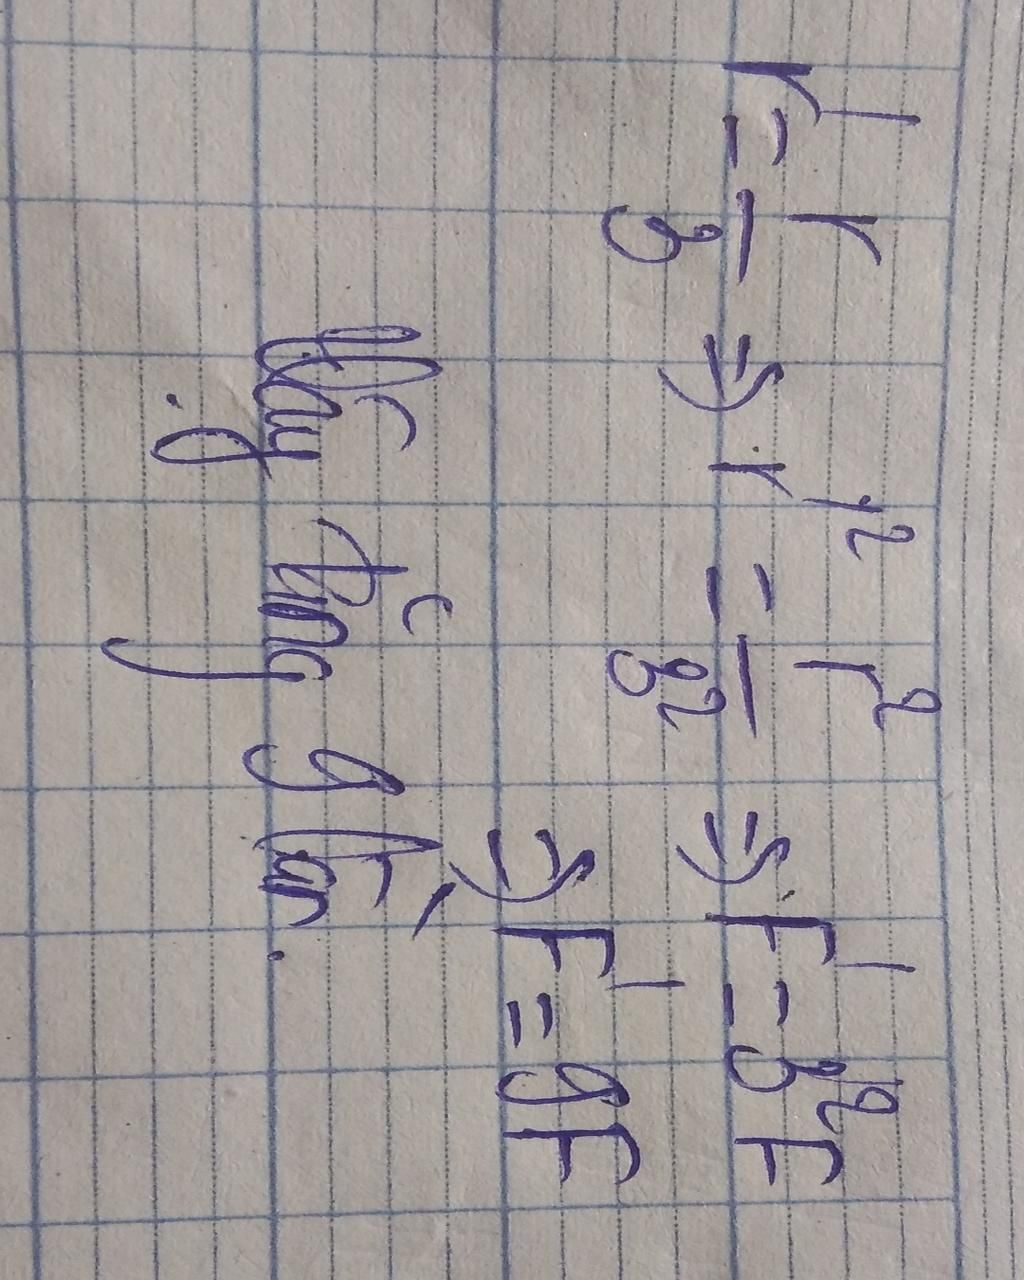 r' = r/3 ⇒ r'² = r²/3² ⇒ F' = 3²F
⇒ F' = 9F
Vậy tăng 9 lần.